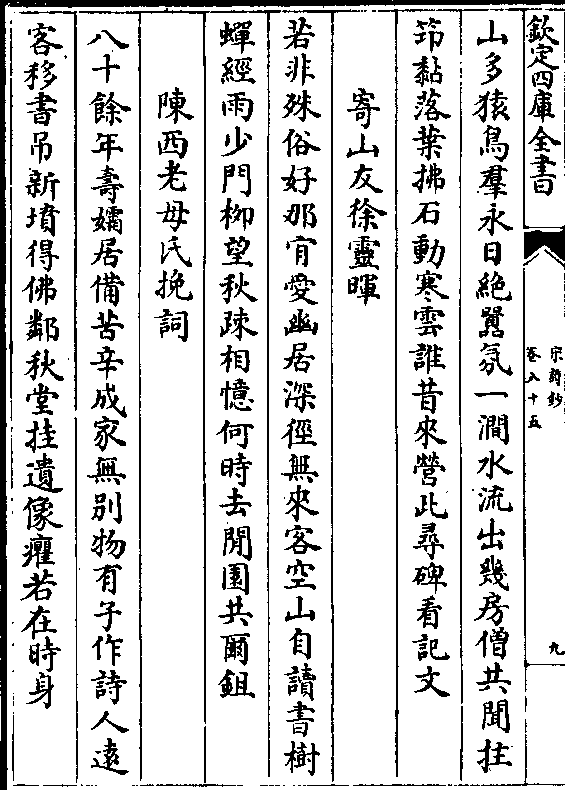 欽定四庫全書
宋詩鈔
卷八十五
九
山多猿鳥羣永日絶嚻氛一澗水流出幾房僧共聞拄
笻黏落葉拂石動寒雲誰昔來營此尋碑看記文
寄山友徐靈暉
若非殊俗好那肎愛幽居深徑無來客空山自讀書樹
蟬經雨少門栁望秋疎相憶何時去閒園共爾鉏
陳西老母氏挽詞
八十餘年壽孀居備苦辛成家無别物有子作詩人遠
客移書吊新墳得佛鄰秋堂挂遺像癯若在時身